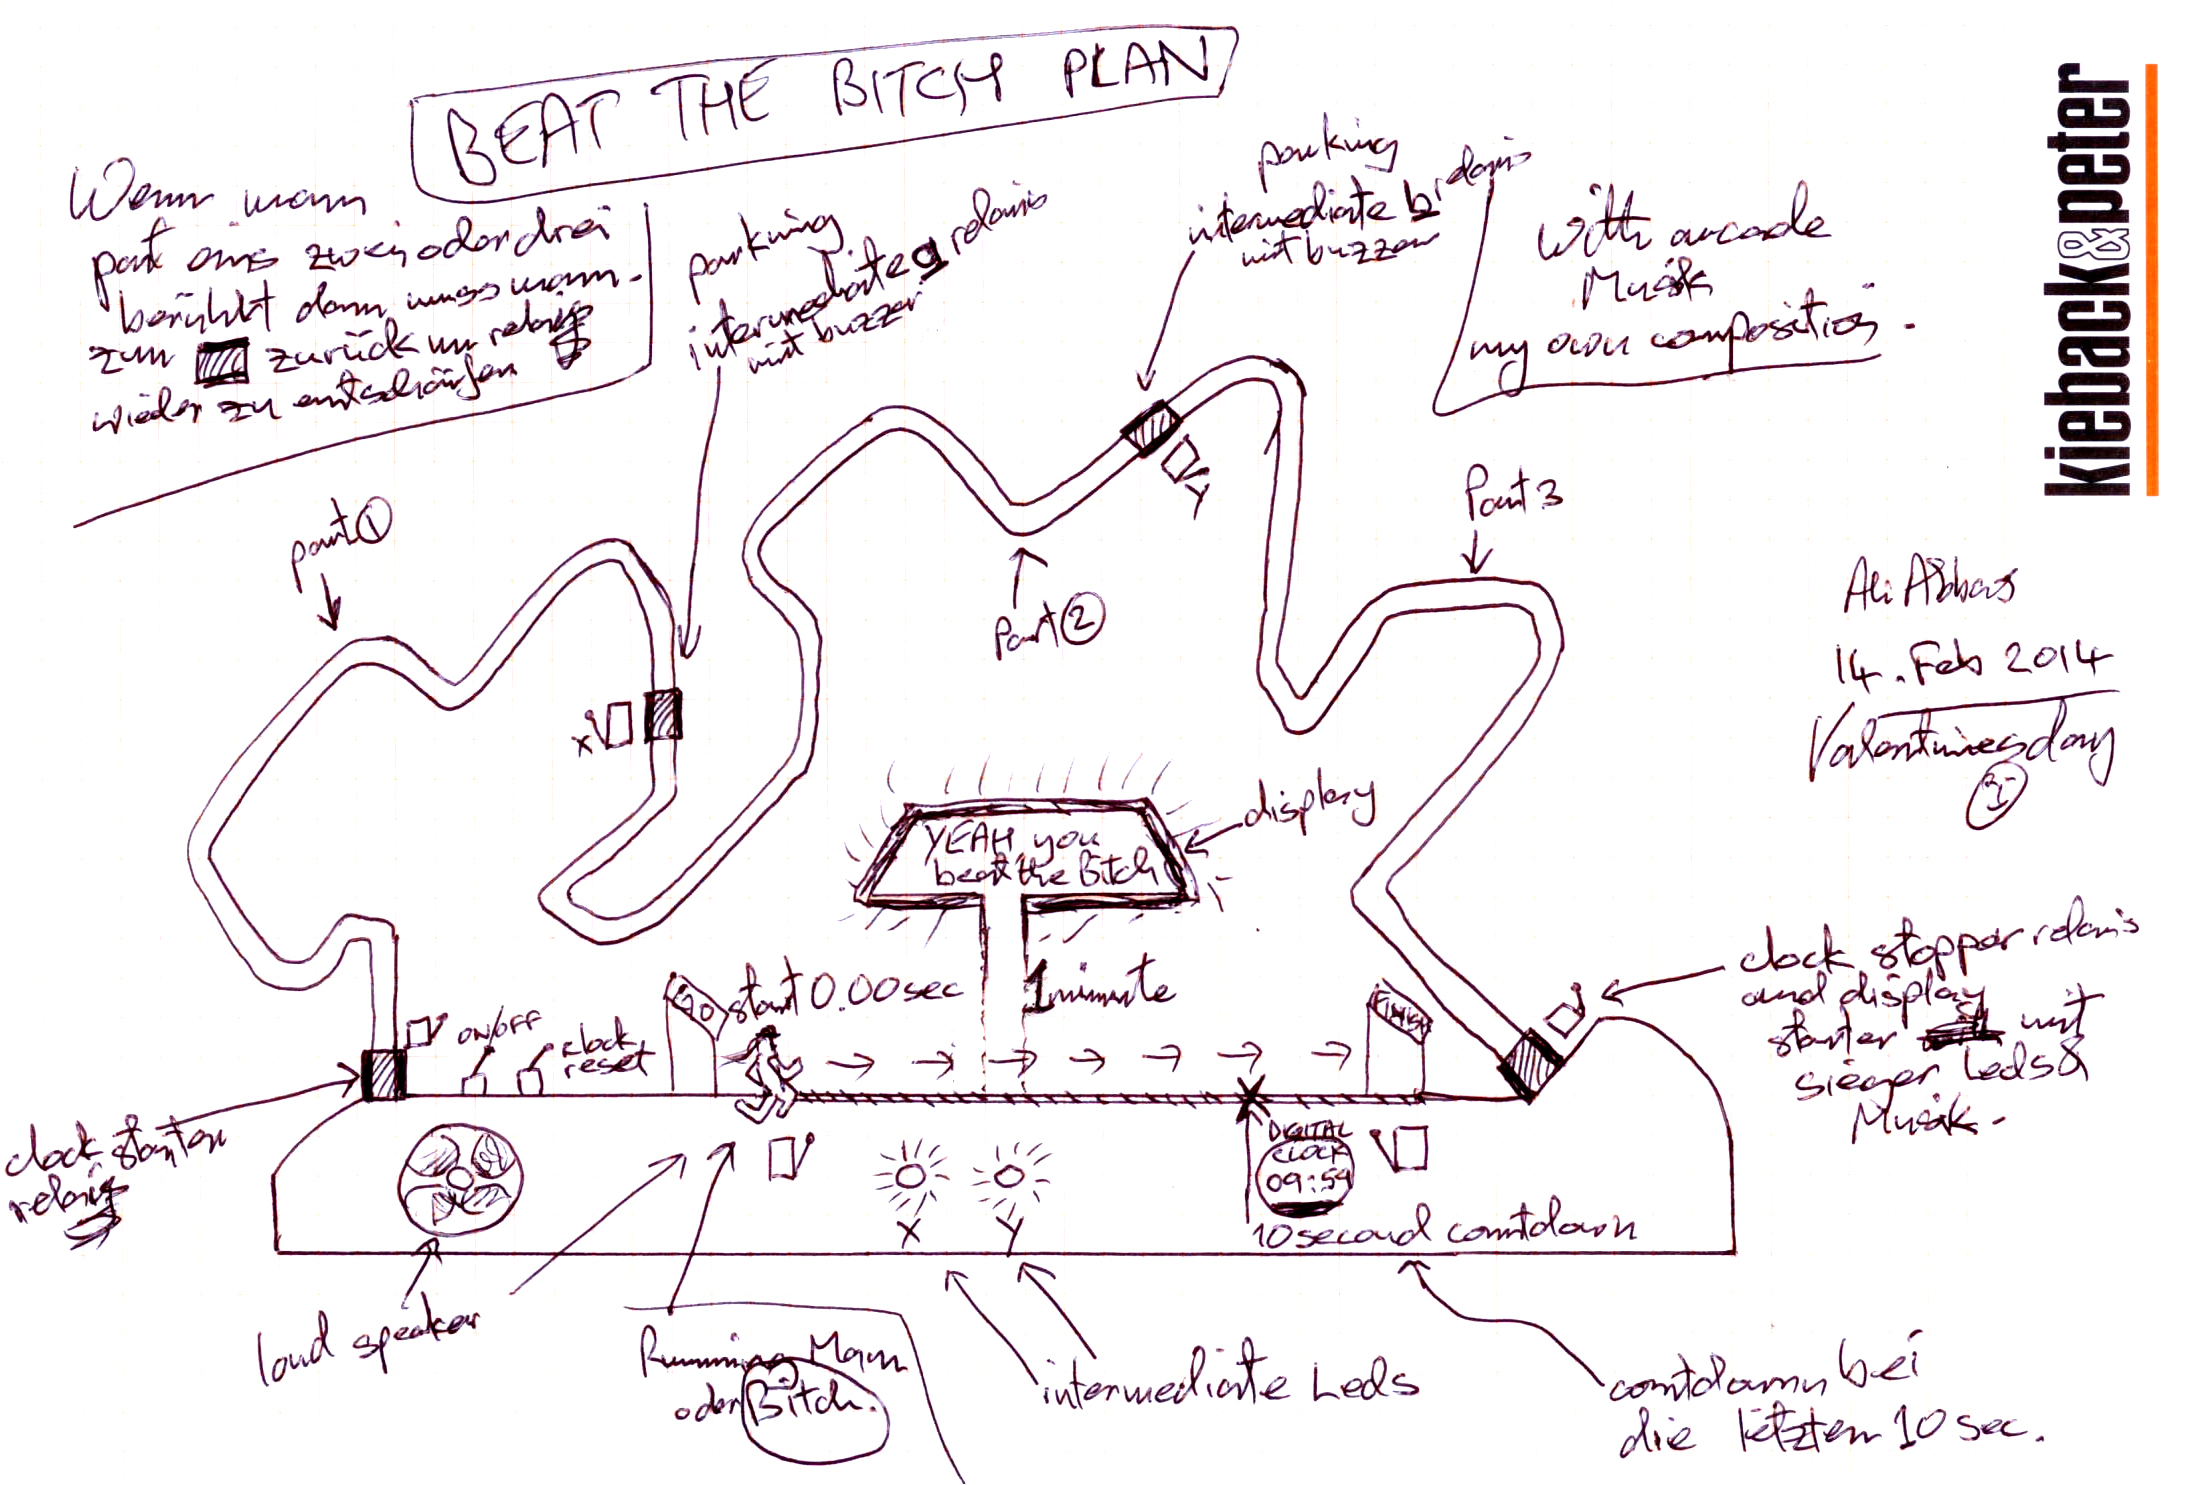 BEAT THE BITCH PLAN
kieback&peter
Wenn mann
part eins zwei oder drei
berühkt dann muss mann.
zum zurück um relais
wieder zu entschärfen
parking
intermediate a relais
mit buzzer
parking
intermediate b relais
mit buzzer
With arcade
Musik
my own composition.
part 1
Part 2
Part 3
Ali Abbas
14. Feb 2014
Valentinesday
X
Y
YEAH you
beat the Bitch
display
clock stopper relais
and display
starter mit
sieger Leds &
Musik.
ON/OFF
clock
reset
GO
start 0.00sec
1 minute
FINISH
clock starter
relais
DIGITAL
CLOCK
09:59
X
Y
10 second countdown
loud speaker
Running Mann
oder Bitch.
intermediate Leds
countdown bei
die letzten 10 sec.